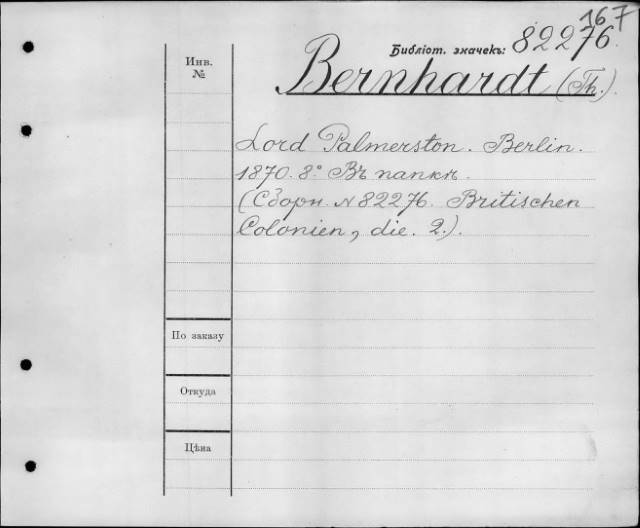 167
Библіот. значекъ: 82276.
Инв.
№
Bernhardt (Th.).
Lord Palmerston. Berlin.
1870. 8.° Въ папкѣ.
(Сборн. № 82276. Britischen
Colonien, die. 2.).
По заказу
Откуда
Цѣна